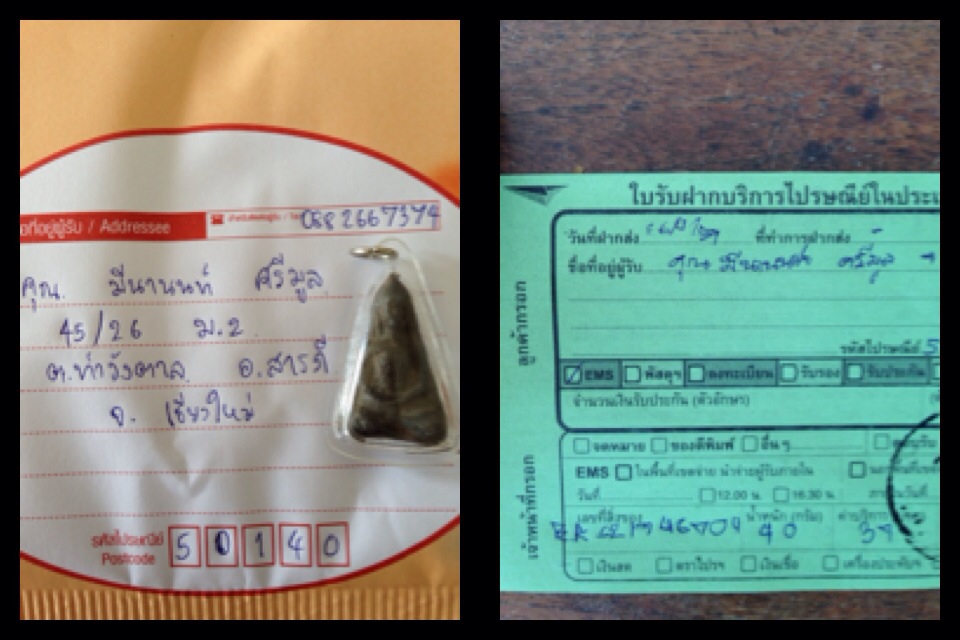 ที่อยู่ผู้รับ / Addressee
0882667374
คุณ มีนานนท์ ศรีมูล
45/26 ม.2
ต.ท่าวังตาล อ.สารภี
จ. เชียงใหม่
รหัสไปรษณีย์
Postcode
50140
ใบรับฝากบริการไปรษณีย์ในประเ
วันที่ฝากส่ง ที่ทำการฝากส่ง
ชื่อที่อยู่ผู้รับ คุณ มีนานนท์ ศรีมูล
ลูกค้ากรอก
รหัสไปรษณีย์ 5
EMS พัสดุฯ ลงทะเบียน รับรอง รับประกัน
จำนวนเงินรับประกัน (ตัวอักษร)
จดหมาย ของตีพิมพ์ อื่นๆ
EMS ในพื้นที่เขตจ่าย นำจ่ายผู้รับภายใน
วันที่ 12.00 น. 16.30 น. ภายในวันที่
เลขที่สิ่งของ น้ำหนัก (กรัม) ค่าบริการ
40
เจ้าหน้าที่กรอก
เงินสด ตราไปรฯ เงินเชื่อ เครื่องประทับฯ